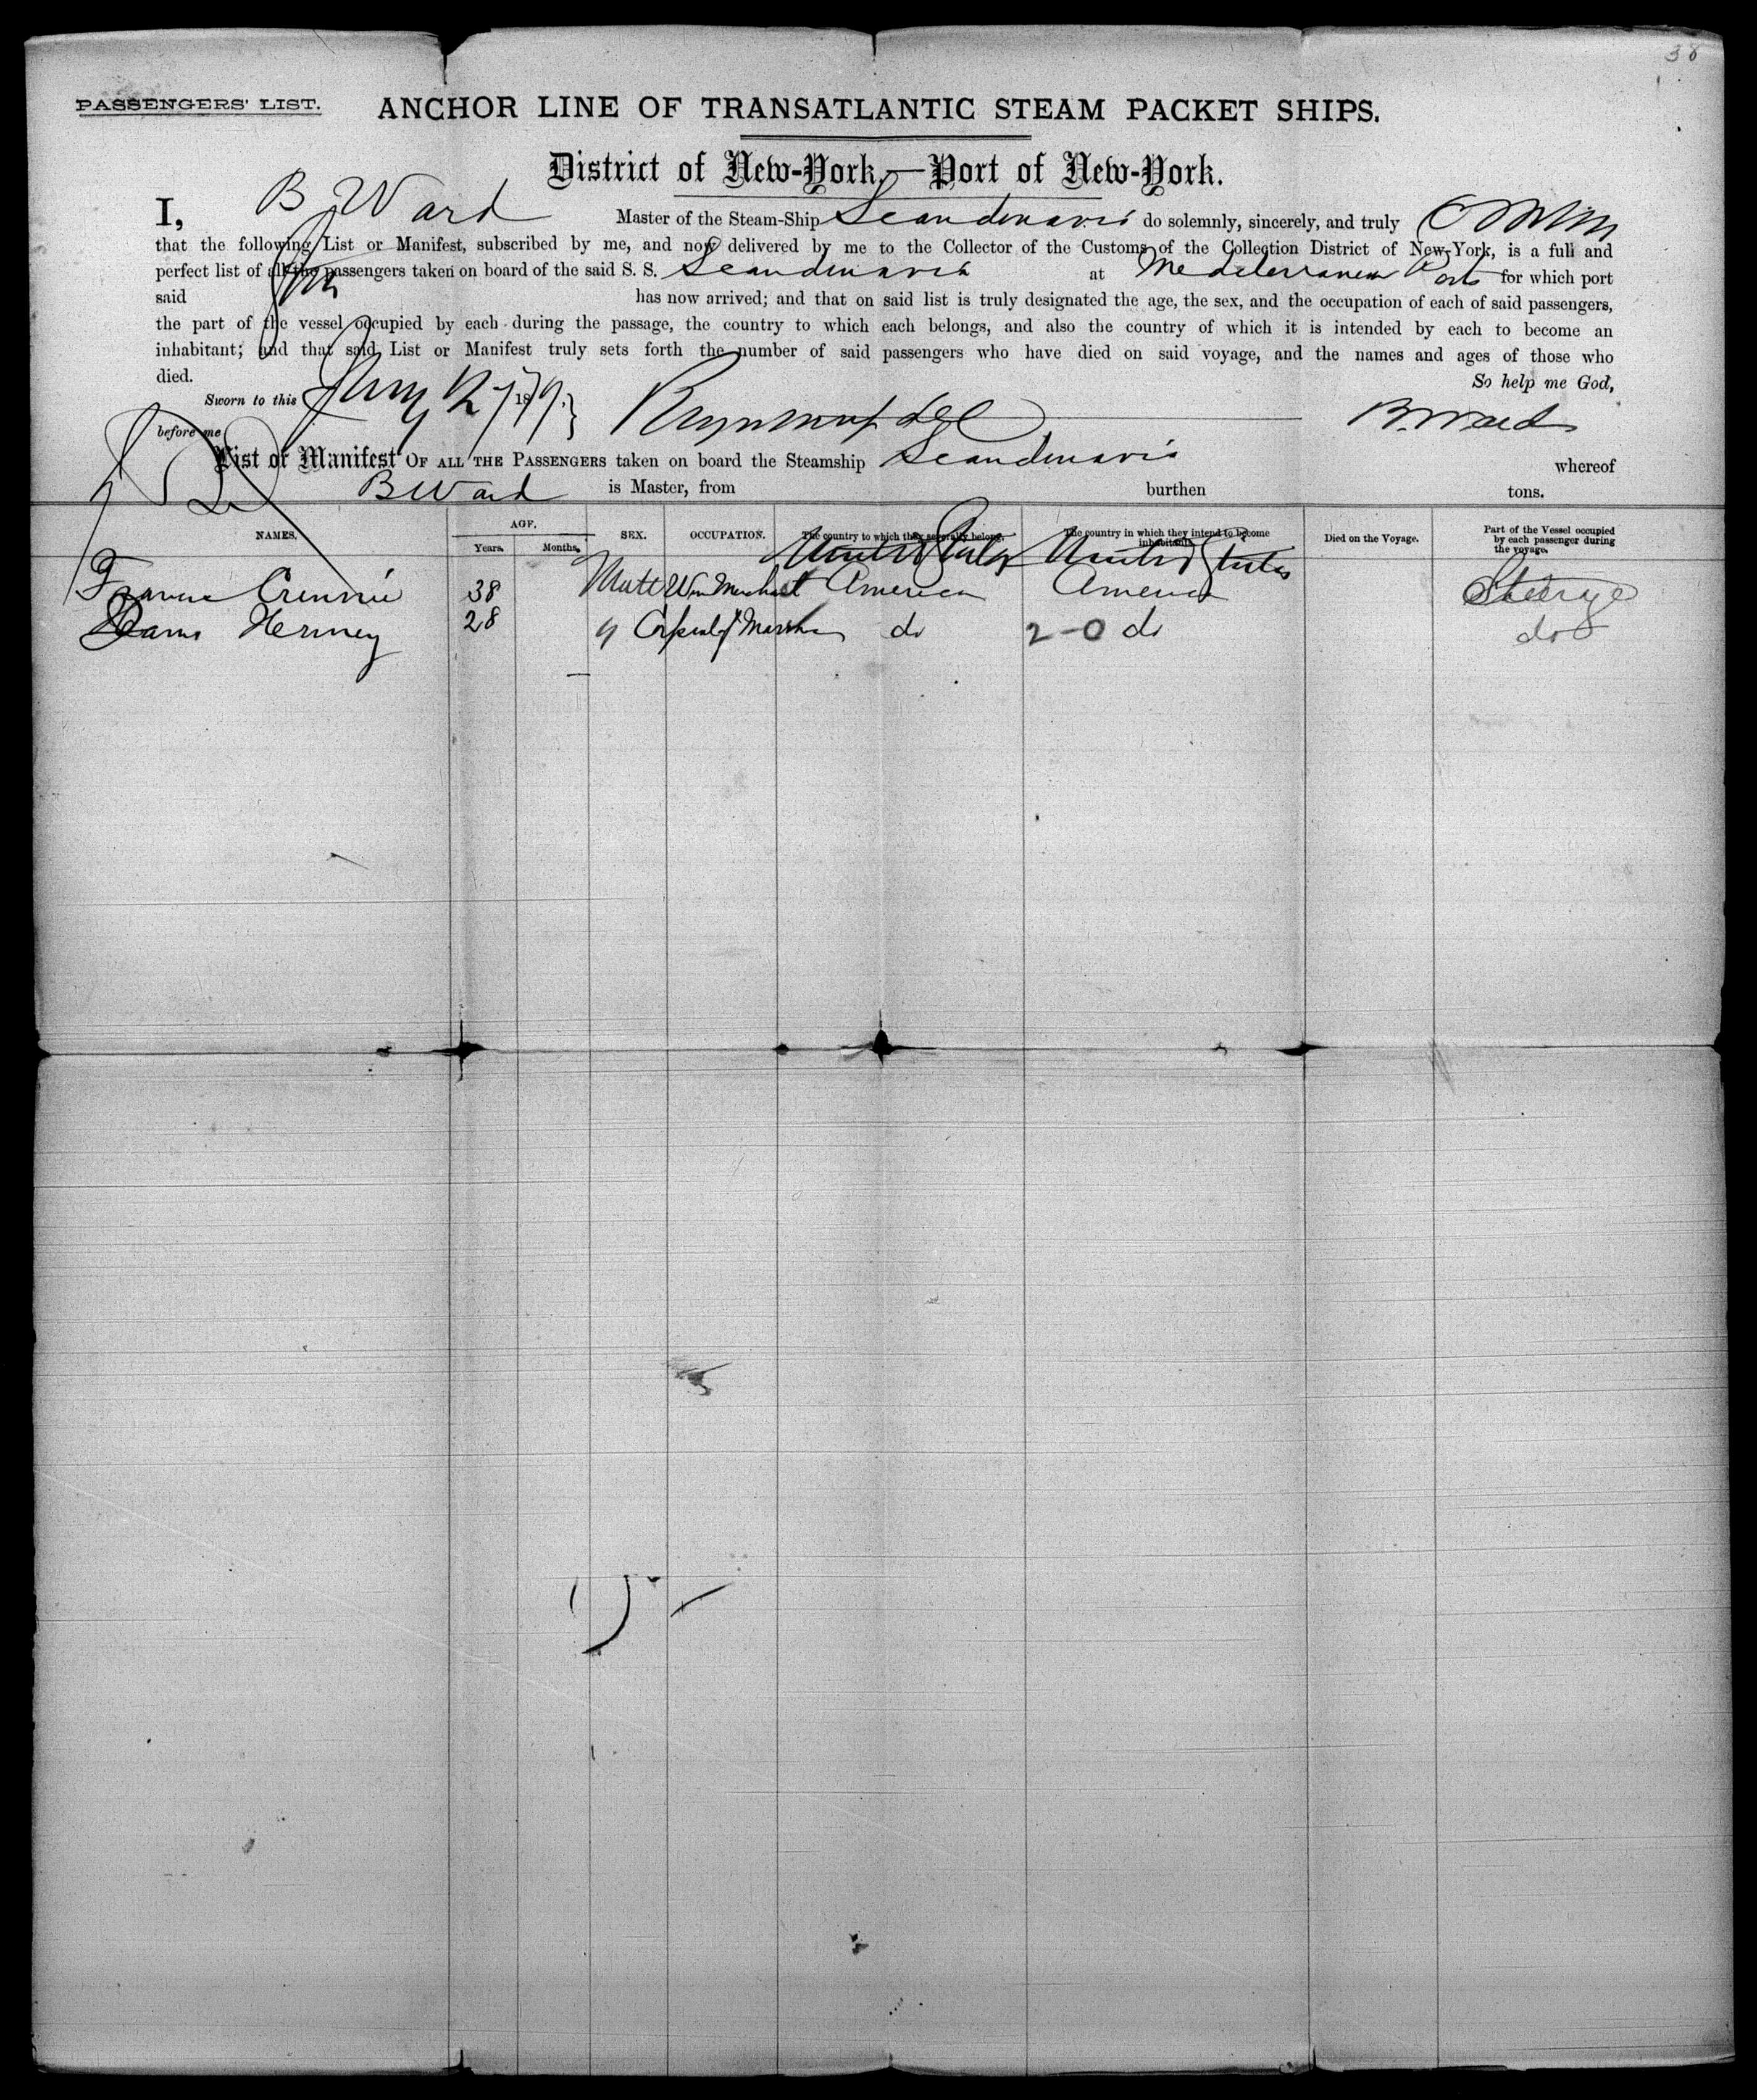 38
PASSENGERS' LIST.
ANCHOR LINE OF TRANSATLANTIC STEAM PACKET SHIPS.
District of New-York,—Port of New-York.
I, B Ward Master of the Steam-Ship Scandinavia do solemnly, sincerely, and truly
that the following List or Manifest, subscribed by me, and now delivered by me to the Collector of the Customs of the Collection District of New-York, is a full and
perfect list of all the passengers taken on board of the said S. S. Scandinavia at Mediterranean Ports for which port
said has now arrived; and that on said list is truly designated the age, the sex, and the occupation of each of said passengers,
the part of the vessel occupied by each during the passage, the country to which each belongs, and also the country of which it is intended by each to become an
inhabitant; and that said List or Manifest truly sets forth the number of said passengers who have died on said voyage, and the names and ages of those who
died. So help me God,
Sworn to this Jany 12 1879 B. Ward
before me
List or Manifest OF ALL THE PASSENGERS taken on board the Steamship Scandinavia whereof
B Ward is Master, from burthen tons.
NAMES. AGE. Years. Months. SEX. OCCUPATION. The country to which they severally belong. The country in which they intend to become inhabitants. Died on the Voyage. Part of the Vessel occupied by each passenger during the voyage.
United States United States
38 Male Merchant America America Steerage
28 Corporal of Marines do 2-0 do do